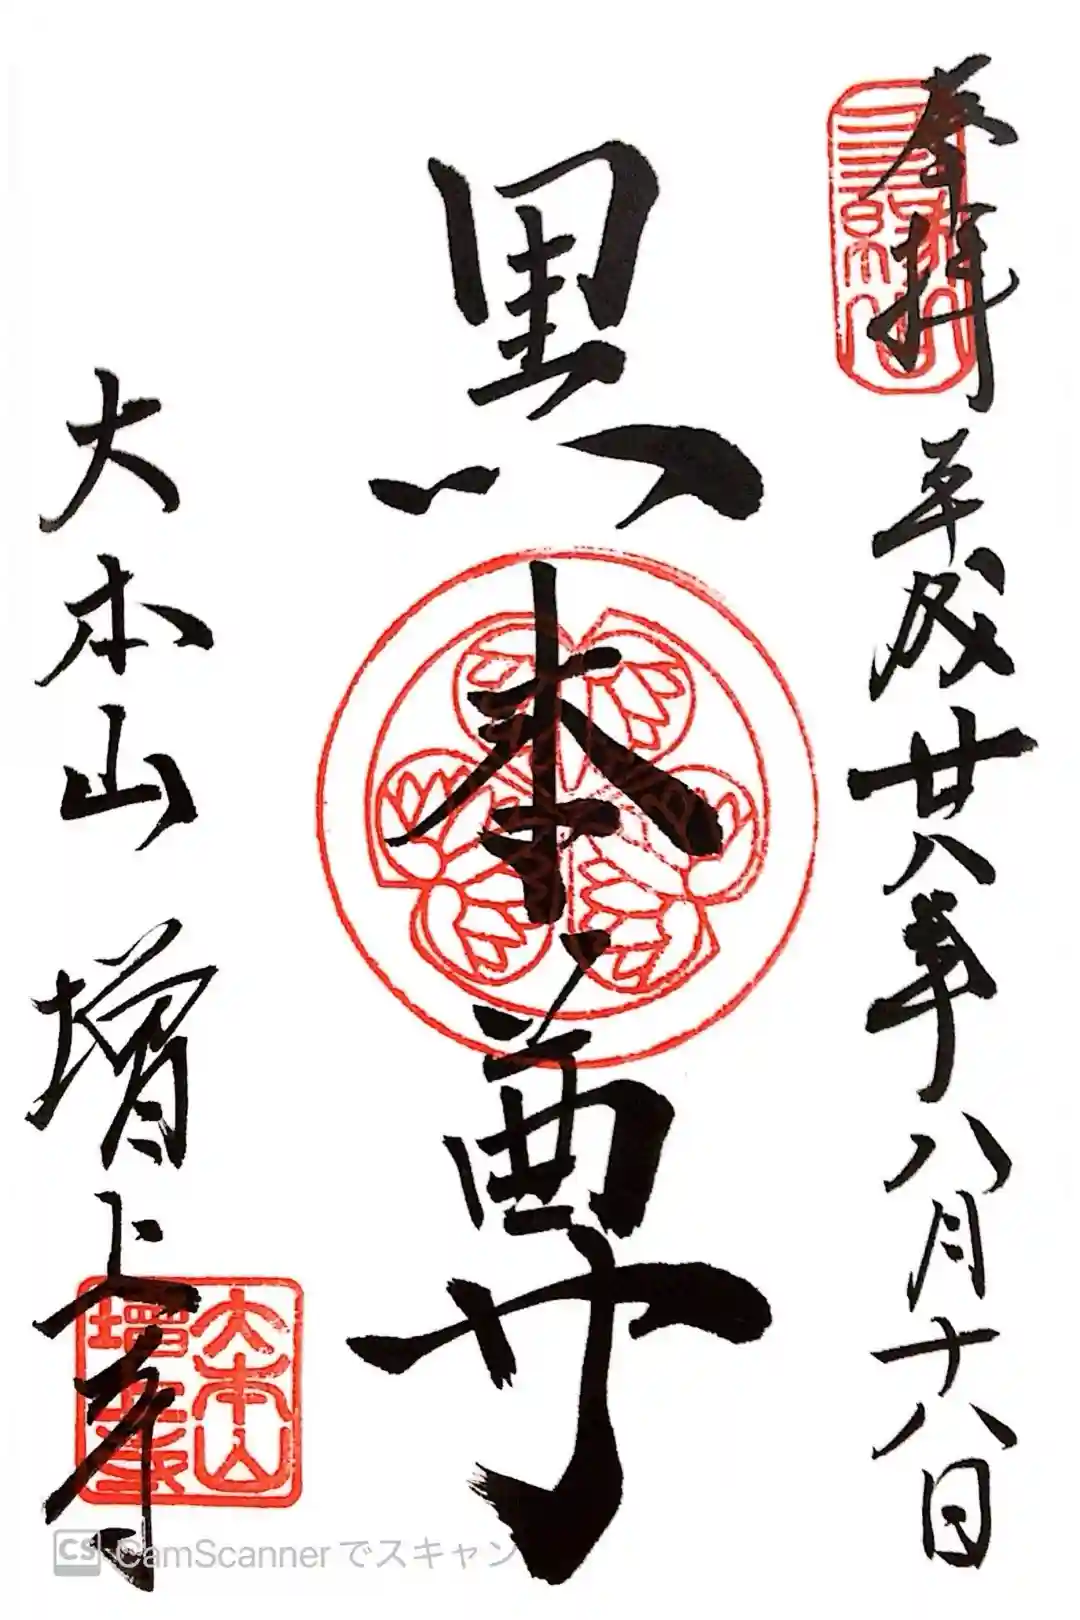 奉拝 平成廿八年八月十八日
三縁山
黒本尊
大本山 増上寺
大本山
増上寺
CS CamScannerでスキャン